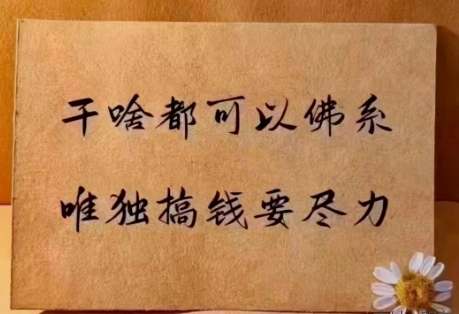 干啥都可以佛系
唯独搞钱要尽力